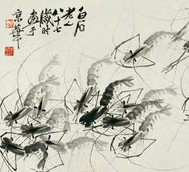 白石
老
八十七
歲時
畫于
京華